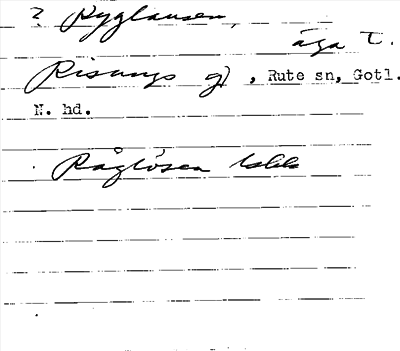 ? Ryglausen,
äga t.
Risungs gd, Rute sn, Gotl.
N. hd.
Råglösen